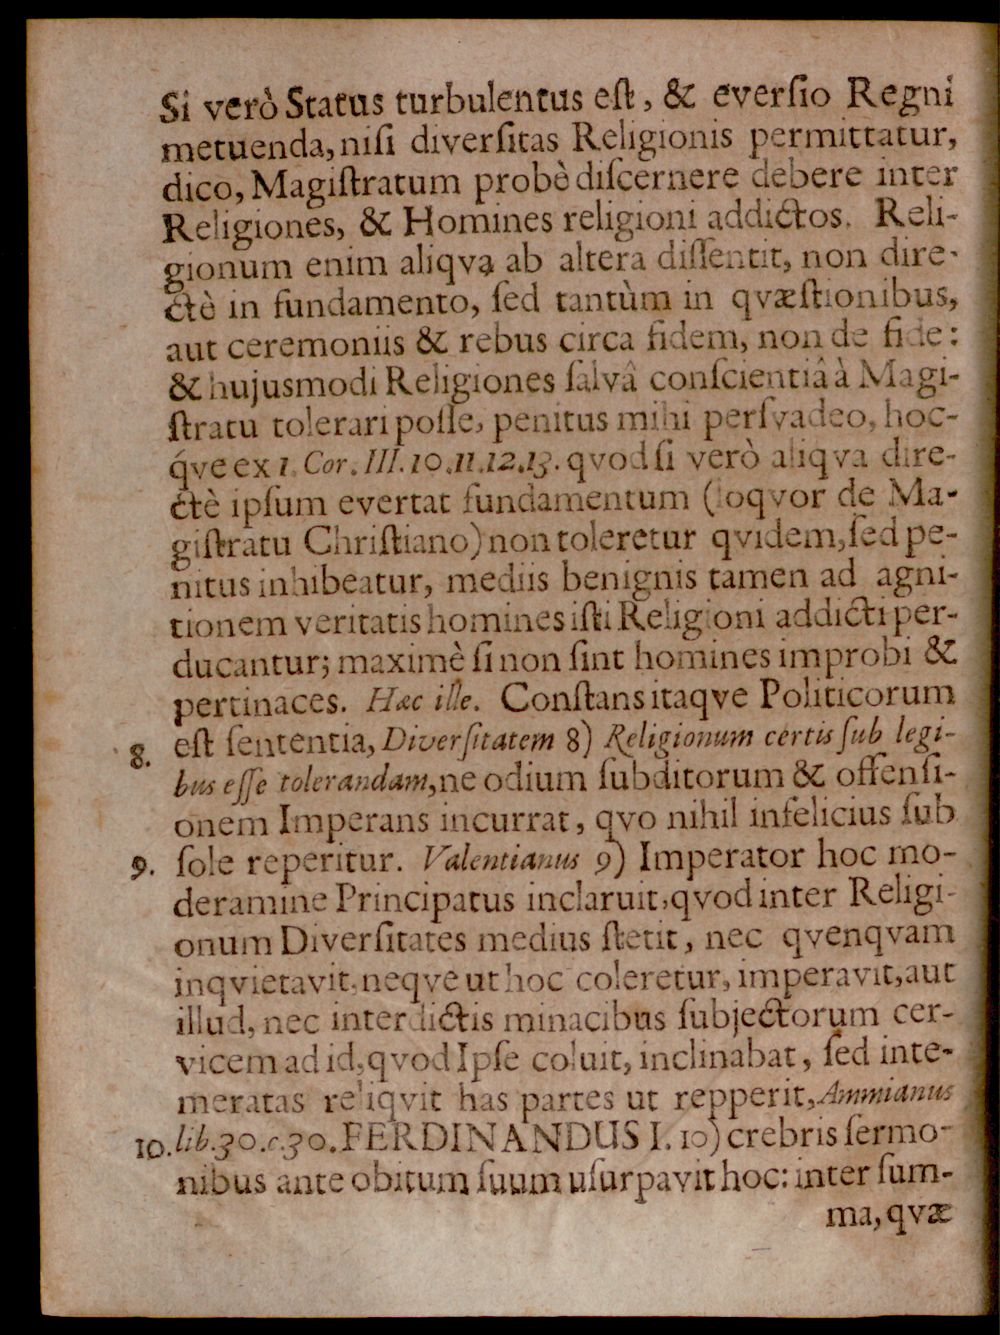 Si verò Status turbulentus eſt, & everſio Regni
metuenda, niſi diverſitas Religionis permittatur,
dico, Magiſtratum probè diſcernere debere inter
Religiones, & Homines religioni addictos. Reli-
gionum enim aliqva ab altera diſſentit, non dire-
ctè in fundamento, ſed tantùm in qvæſtionibus,
aut ceremoniis & rebus circa fidem, non de fide:
& hujusmodi Religiones ſalvâ conſcientiâ à Magi-
ſtratu tolerari poſſe, penitus mihi perſvadeo, hoc-
q́ve ex 1. Cor. III. 10.11.12.13. qvod ſi verò aliqva dire-
ctè ipſum evertat fundamentum (loqvor de Ma-
giſtratu Chriſtiano) non toleretur qvidem, ſed pe-
nitus inhibeatur, mediis benignis tamen ad agni-
tionem veritatis homines iſti Religioni addicti per-
ducantur; maximè ſi non ſint homines improbi &
pertinaces. Hæc ille. Conſtans itaqve Politicorum
8. eſt ſententia, Diverſitatem 8) Religionum certis ſub legi-
bus eſſe tolerandam, ne odium ſubditorum & offenſi-
onem Imperans incurrat, qvo nihil infelicius ſub
9. ſole reperitur. Valentianus 9) Imperator hoc mo-
deramine Principatus inclaruit, qvod inter Religi-
onum Diverſitates medius ſtetit, nec qvenqvam
inqvietavit, neqve ut hoc coleretur, imperavit, aut
illud, nec interdictis minacibus ſubjectorum cer-
vicem ad id, qvod Ipſe coluit, inclinabat, ſed inte-
meratas reliqvit has partes ut repperit, Ammianus
10. lib. 30. c. 30. FERDINANDUS I. 10) crebris ſermo-
nibus ante obitum ſuum uſurpavit hoc: inter ſum-
ma, qvæ